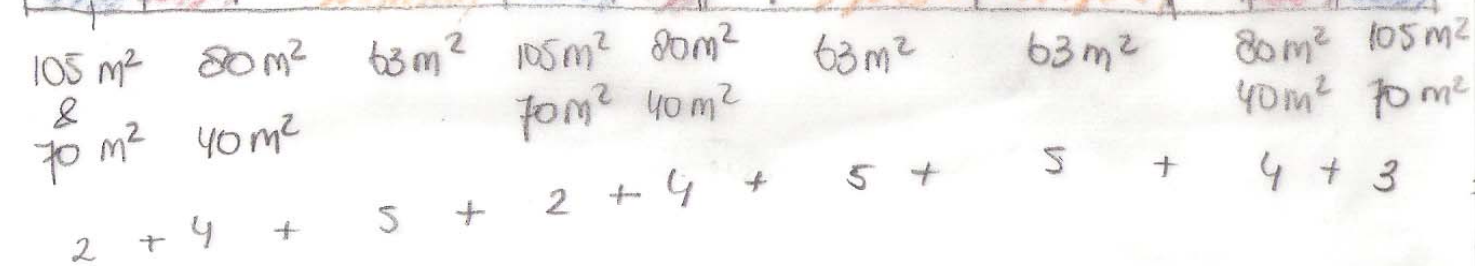 105 m² 80 m² 63 m² 105 m² 80 m² 63 m² 63 m² 80 m² 105 m²
&
70 m² 40 m² 70 m² 40 m² 40 m² 70 m²
2 + 4 + 5 + 2 + 4 + 5 + 5 + 4 + 3